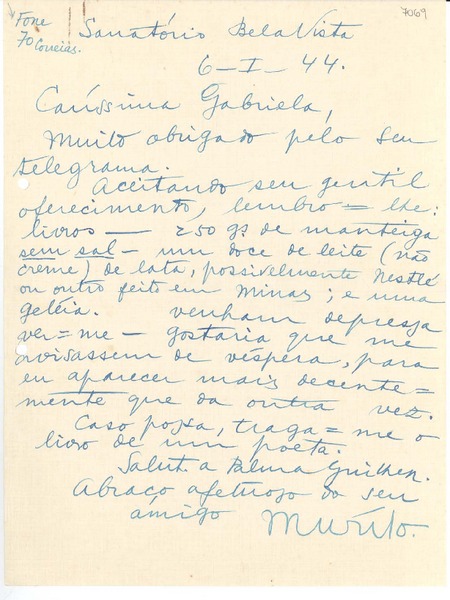 7069
Fone
70 Correias.
Sanatório Bela Vista
6-I-44.
Caríssima Gabriela,
Muito obrigado pelo seu
telegrama.
Aceitando seu gentil
oferecimento, lembro=lhe:
livros — 250 gs de manteiga
sem sal — um doce de leite (não
creme) de lata, possivelmente Nestlé
ou outro feito em Minas; e uma
geléia. Venham depressa
ver=me — gostaria que me
avisassem de véspera, para
eu aparecer mais decente=
mente que da outra vez.
Caso possa, traga=me o
livro de um poeta.
Salut. a Palma Guillen.
Abraço afetuoso do seu
amigo Murilo.